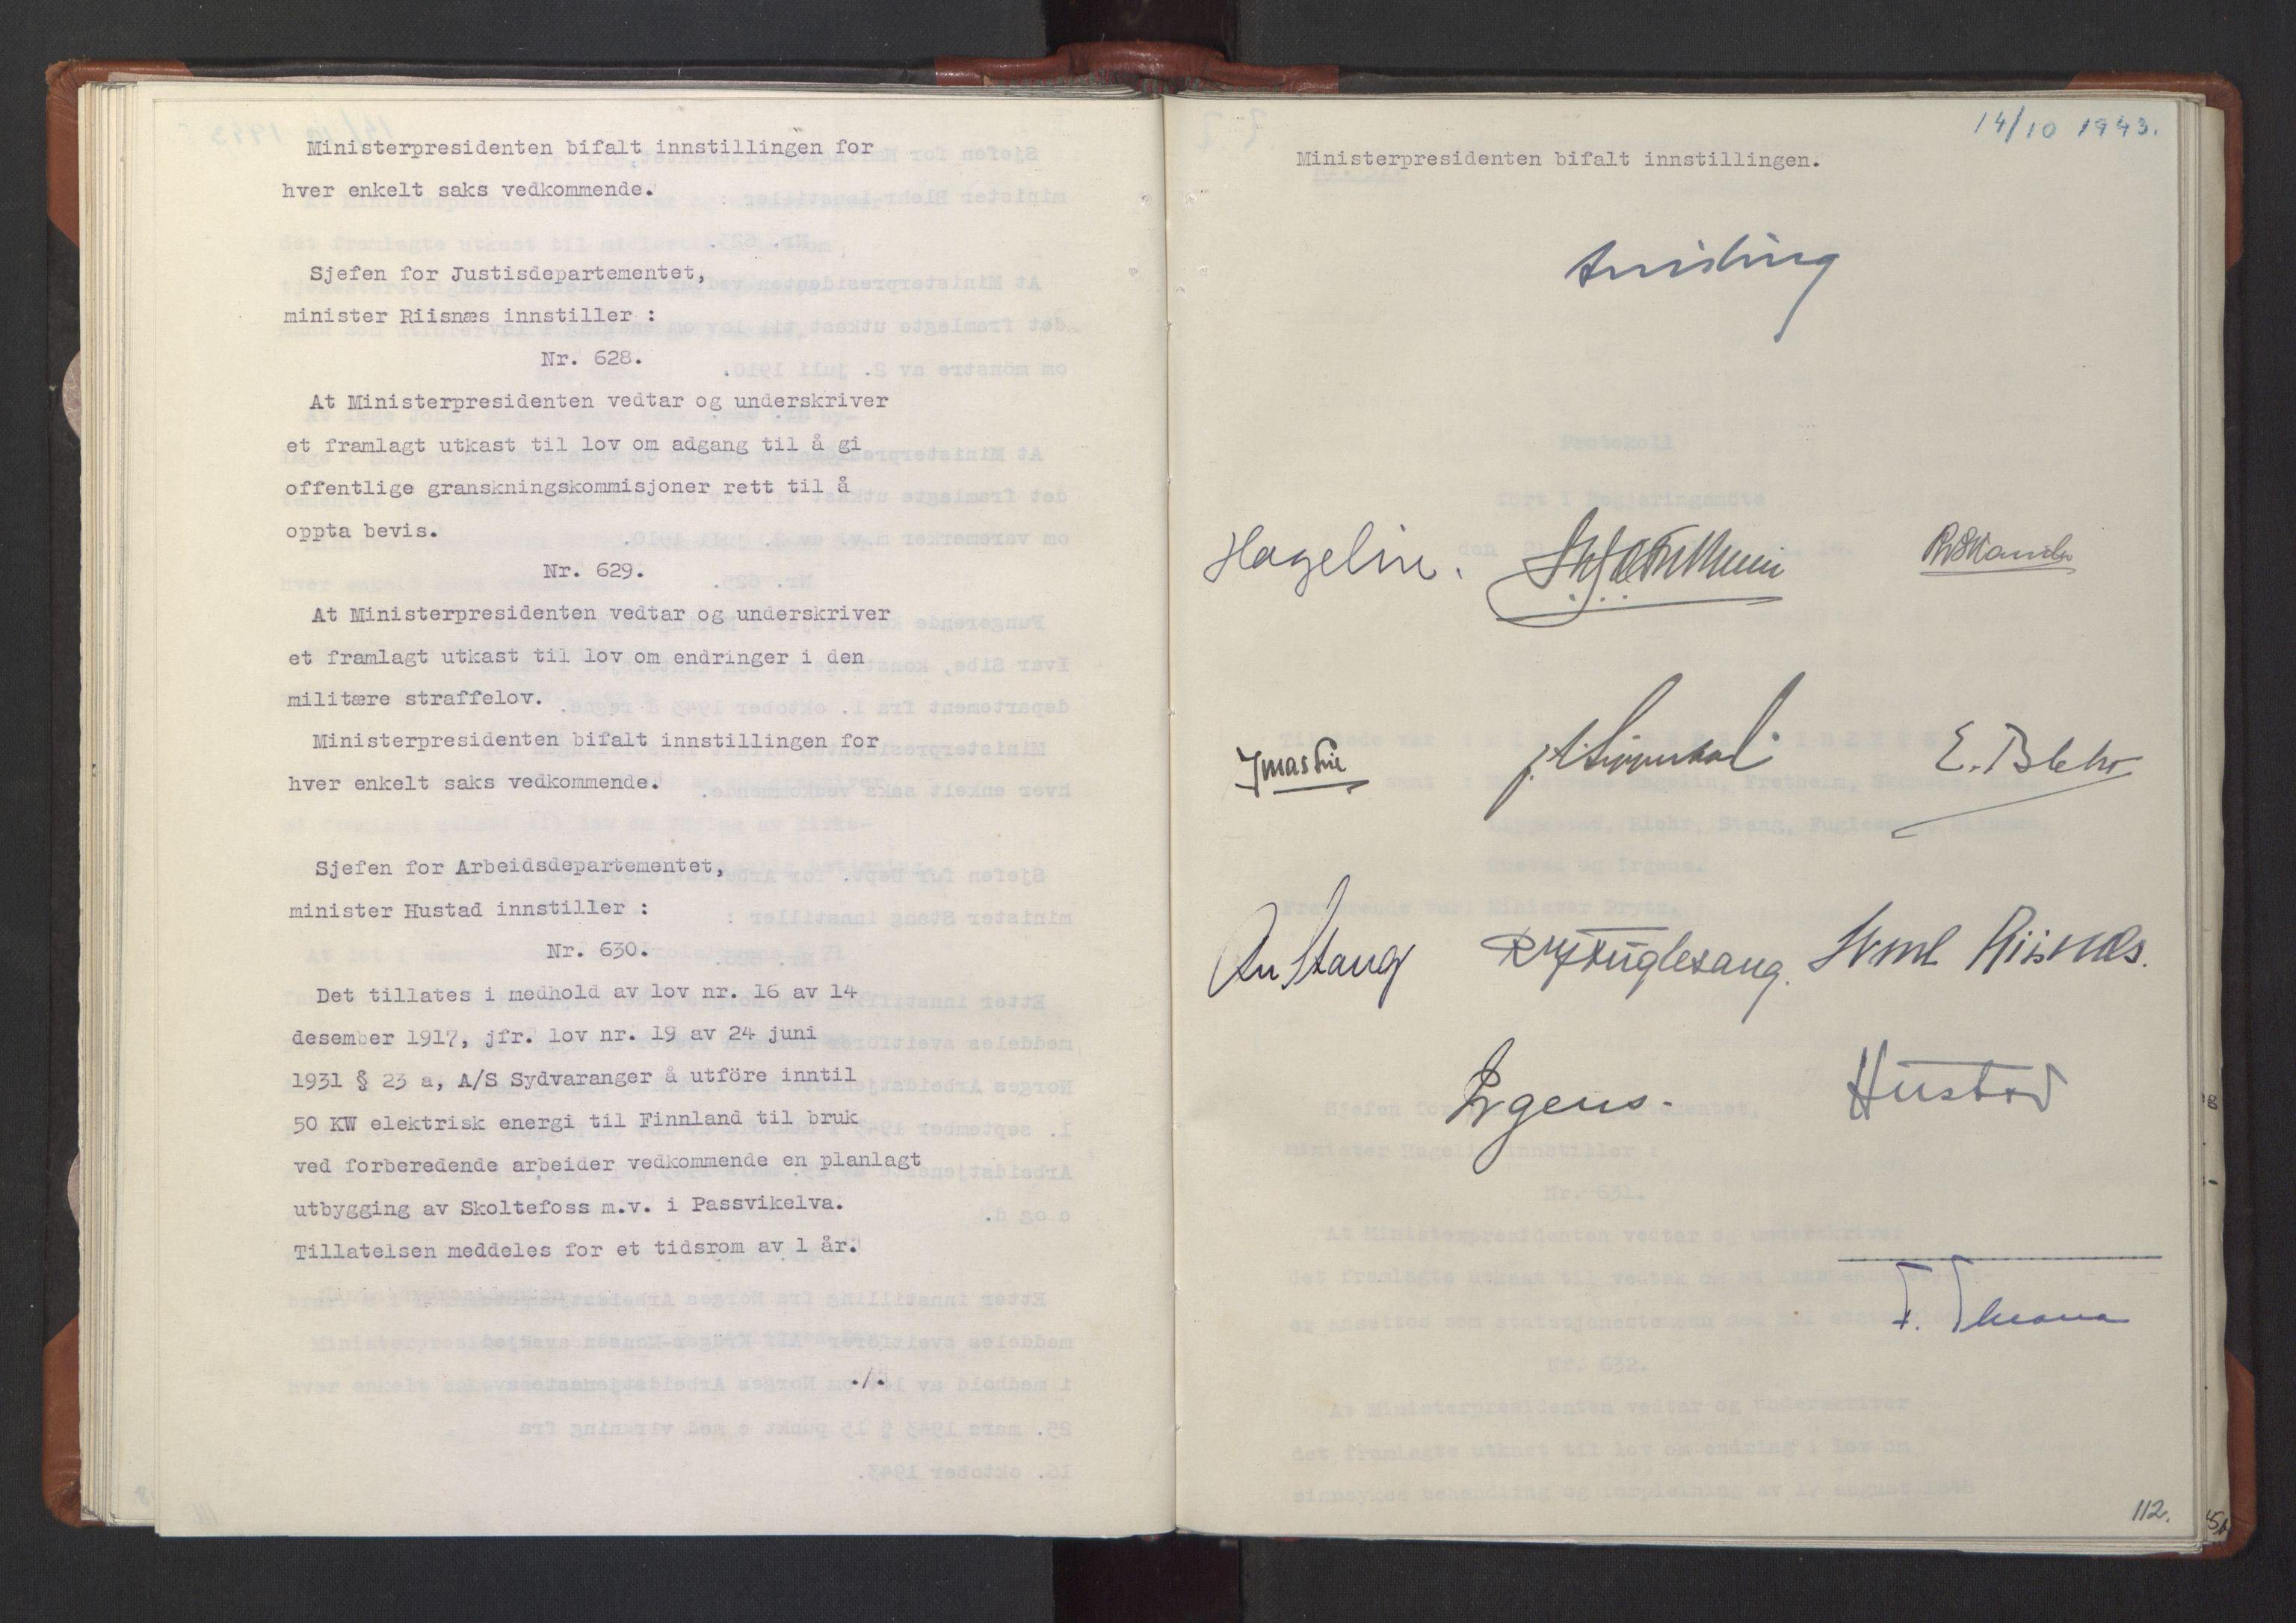 Ministerpresidenten bifalt innstillingen for
hver enkelt saks vedkommende.
Sjefen for Justisdepartementet,
minister Riisnæs innstiller :
Nr. 628.
At Ministerpresidenten vedtar og underskriver
et framlagt utkast til lov om adgang til å gi
offentlige granskningskommisjoner rett til å
oppta bevis.
Nr. 629.
At Ministerpresidenten vedtar og underskriver
et framlagt utkast til lov om endringer i den
militære straffelov.
Ministerpresidenten bifalt innstillingen for
hver enkelt saks vedkommende.
Sjefen for Arbeidsdepartementet,
minister Hustad innstiller :
Nr. 630.
Det tillates i medhold av lov nr. 16 av 14
desember 1917, jfr. lov nr. 19 av 24 juni
1931 § 23 a, A/S Sydvaranger å utföre inntil
50 KW elektrisk energi til Finnland til bruk
ved forberedende arbeider vedkommende en planlagt
utbygging av Skoltefoss m.v. i Passvikelva.
Tillatelsen meddeles for et tidsrom av 1 år.
./.
14/10 1943.
Ministerpresidenten bifalt innstillingen.
Quisling
Hagelin.
E. Blehr
Stang Fuglesang. Riisnæs.
Irgens. Hustad
112.